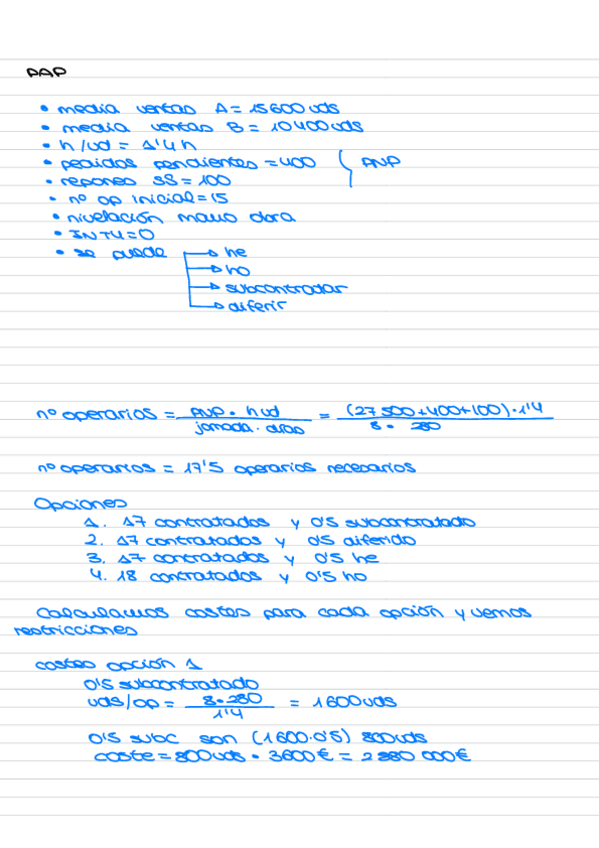 PAP
• media ventas A = 15600 uds
• media ventas B = 10400 uds
• h/ud = 1'4 h
• pedidos pendientes = 400 PNP
• repones SS = 100
• nº op inicial = 15
• nivelación mano obra
• INTU = 0
• se puede → he
→ ho
→ subcontratar
→ diferir
nº operarios = PNP • h ud / jornada • días = (27 500 + 400 + 100) • 1'4 / 8 • 280
nº operarios = 17'5 operarios necesarios
Opciones
1. 17 contratados y 0'5 subcontratado
2. 17 contratados y 0'5 diferido
3. 17 contratados y 0'5 he
4. 18 contratados y 0'5 ho
Calculamos costes para cada opción y vemos
restricciones
costes opción 1
0'5 subcontratado
uds/op = 8 • 280 / 1'4 = 1600 uds
0'5 subc son (1600•0'5) 800 uds
coste = 800 uds • 3600 € = 2 880 000 €